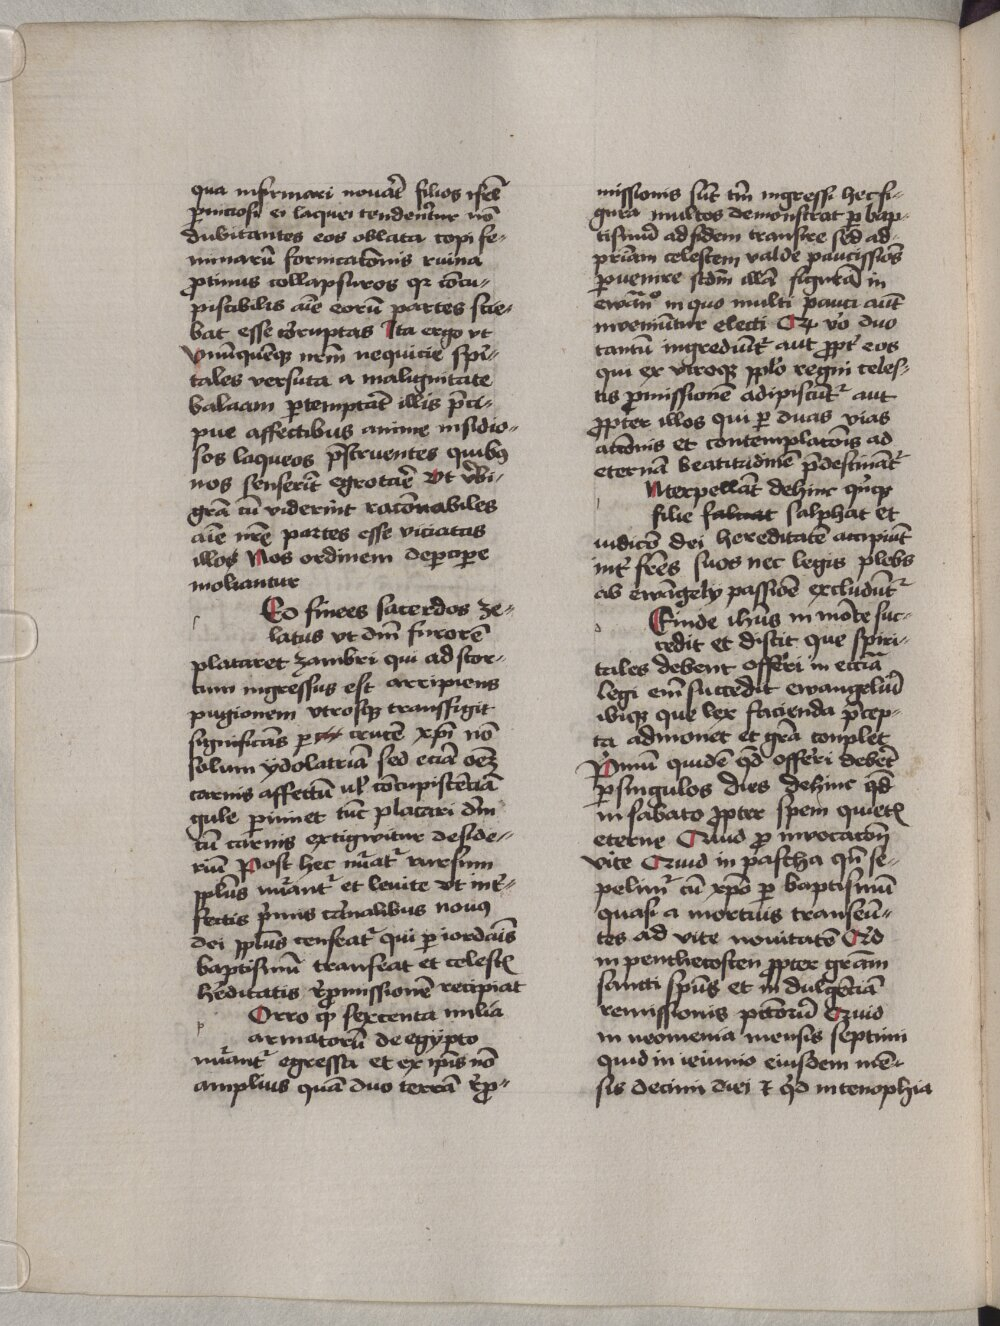 qua infirmari nouāt filios isrł
ꝑniciosi ei laquei tendentur nō
dubitantes eos oblata copi fe-
minarū fornicatōnis ruina
ꝓtinus collapsuros qz cōcu-
piscibilis aīe eorū partes scie-
bat esse corruptas Ita ergo vt
vnūquēqz nrm nequicie spi-
tales versuta a malignitate
balaam ꝑtemptāt illis p̄ci-
pue affectibus anime insidio-
sos laqueos p̄struentes quibus
nos senserīt egrotare Vt vbi
grā cū viderint racōnabiles
aīe nrē partes esse viciatas
illos Nos ordinem deꝑcipe
moliantur
Eo finees sacerdos ze-
latus vt dm̄ furorē
placaret zambri qui ad scor-
tum ingressus est arripiens
pugionem vtrosqz transfigit
significās ꝑ crucē xpī nō
solum ydolatriā sed eciā oēz
carnis affectū ul' cōcupiscēciā
gule ꝑimet tūc placari dm̄
cū carnis extigwitur deside-
riū Post hec nūat᷑ rursum
ppl̄us nūant᷑ et leuite vt int᷑-
fectis p̄mis carnalibus nouus
dei ppl̄us censeat᷑ qui ꝑ iordanis
baptismū transeat et celestis
hereditatis rep̄missionē recipiat
Orro qz sexcenta milia
armatorū de egypto
nūant᷑ egressa et ex ipīs nō
amplius quā duo terrā repro-
missionis sūt tm̄ ingressi hec fi-
gura multos demonstrat ꝑ bap-
tismū ad fidem transire sed ad
pr̄iam celestem valde paucissios
ꝑuenire scdm illā figurā in
ewāo in quo multi pauci aūt
inveniūtur electi Qz vo duo
tantū ingrediūt᷑ aut ꝓpt᷑ eos
qui ex vtroqz pplo regni celes-
tis ꝓmissionē adipiscūt᷑ aut
ꝓpter illos qui ꝑ duas vias
actōnis et contemplatōis ad
eternā beatitudinē p̄destināt᷑
Nterpellāt dehinc qnqz
filie salphat et
iudicō dei hereditatē accipiūt
int᷑ frēs suos nec legis plebs
ab ewāgely passiōe excludūt᷑
Einde ihūs in mōte suc-
cedit et discit que spiri-
tales debent offeri in ecciā
legi em̄ succedit ewangeliū
ibiqz que lex facienda p̄cep-
ta admonet et grā complet
Primū quidē qd offeri debēt
ꝑ singulos dies dehinc qd
in sabato ꝓpter spem quietis
eterne Quid ꝓ invocatōn
vite Quid in pascha qn se-
pelim᷑ cū xpō ꝑ baptismū
quasi a mortuis transeun-
tes ad vite nouitatē Qd
in penthecosten ꝓpter grām
sancti spūs et indulgēciā
remissionis pctōrū Quid
in neomenia mensis septimi
quid in ieiunio eiusdem mē-
sis decimi diei et qd in cenophia